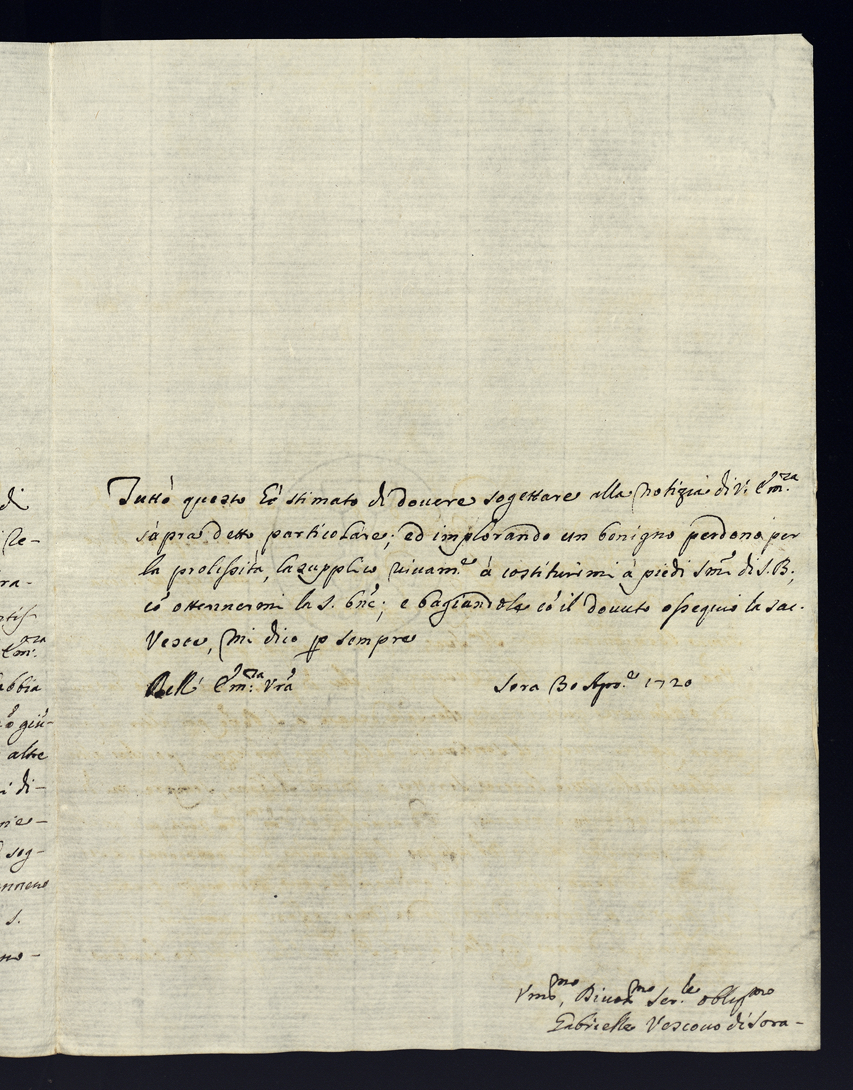 di
Re-
ra-
abbia
giu-
altre
di-
rie-
sog-
S.
no-
Tutto questo hò stimato di douere sogettare alla notizia di V. Em.za
sopra detto particolare; ed implorando un benigno perdono per
la prolissita, la supplico uiuam.e à costituirmi à piedi Sm̃i di S. B.,
cõ ottenermi la S. bñe; e bagiandole cõ il douuto ossequio la sac.
Veste, mi dico p sempre
Dell' Em.za Vrã
Sora 30 Apr.e 1720
Vmo, Diuot.mo Ser.le oblig.mo
Gabrielle Vescouo di Sora-